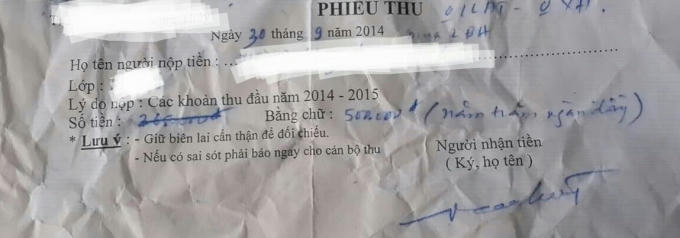 PHIẾU THU
Ngày 30 tháng 9 năm 2014
Họ tên người nộp tiền :
Lớp :
Lý do nộp : Các khoản thu đầu năm 2014 - 2015
Số tiền : Bằng chữ : 500.000đ (năm trăm ngàn
* Lưu ý : - Giữ biên lai cẩn thận để đối chiếu.
- Nếu có sai sót phải báo ngay cho cán bộ thu
Người nhận tiền
(Ký, họ tên)